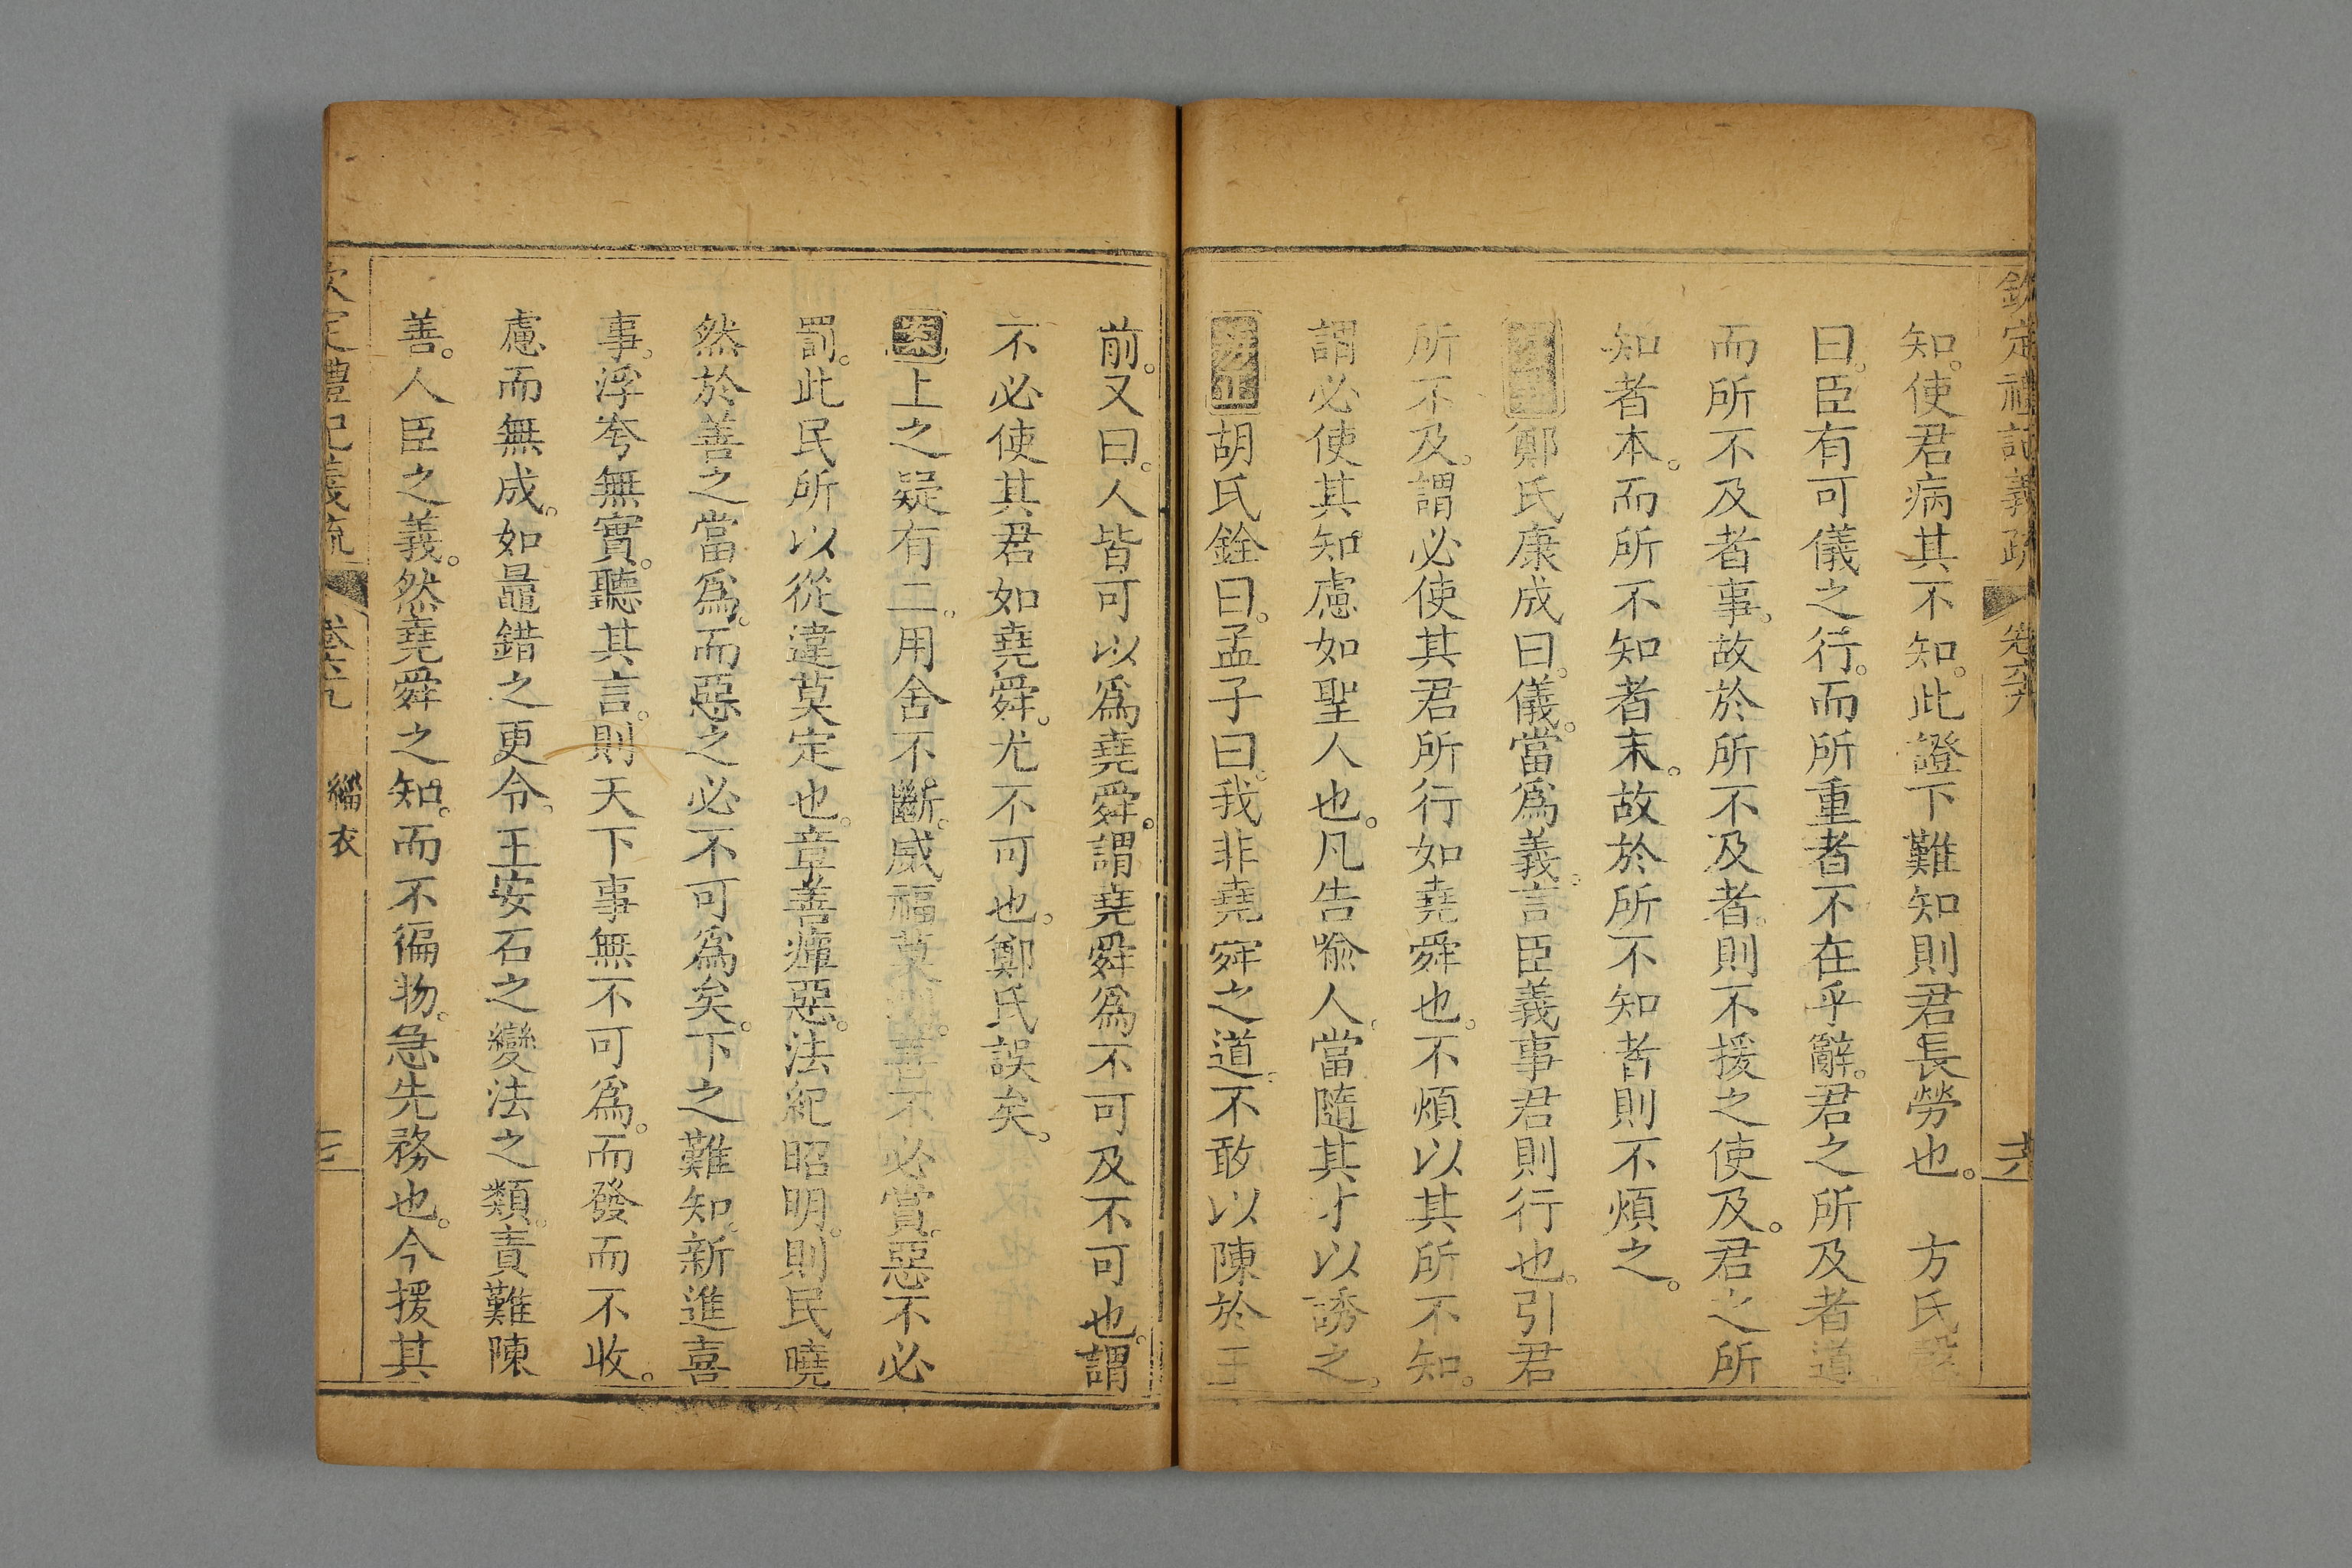 欽定禮記義疏 卷六十九
知。使君病其不知。此證下難知則君長勞也。 方氏慤
曰。臣有可儀之行。而所重者不在乎辭。君之所及者道。
而所不及者事。故於所不及者。則不援之使及。君之所
知者本。而所不知者末。故於所不知者則不煩之。
鄭氏康成曰。儀。當爲義。言臣義事君則行也。引君
所不及。謂必使其君所行如堯舜也。不煩以其所不知。
謂必使其知慮如聖人也。凡告喩人。當隨其才以誘之。
胡氏銓曰。孟子曰。我非堯舜之道。不敢以陳於王
前。又曰。人皆可以爲堯舜。謂堯舜爲不可及不可也。謂
不必使其君如堯舜。尤不可也。鄭氏誤矣。
案上之疑有二。用舍不斷。威福莫必。善不必賞。惡不必
罰。此民所以從違莫定也。章善癉惡。法紀昭明。則民曉
然於善之當爲。而惡之必不可爲矣。下之難知。新進喜
事。浮夸無實。聽其言。則天下事無不可爲。而發而不收。
慮而無成。如鼂錯之更令。王安石之變法之類。責難陳
善。人臣之義。然堯舜之知。而不徧物。急先務也。今援其
欽定禮記義疏 卷六十九 緇衣